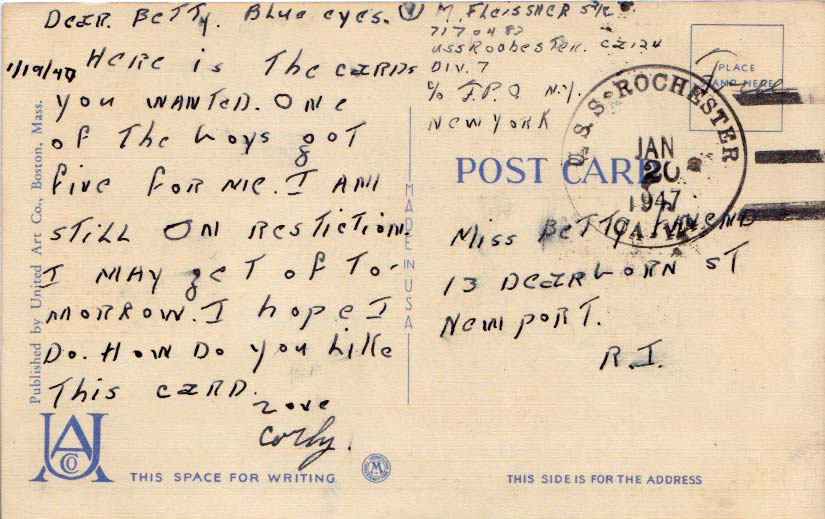 DEAR. BETTY. BLUE EYES.
1/19/47
HERE is THE CARDS
you WANTED. ONE
of THE boys goT
five FOR ME. I AM
STiLL ON RESTiCTiON.
I MAY geT of To-
MORROW. I hope I
Do. HOW Do you Like
THis CARD.
Love
Corky.
M. FLeiSSNER S1/c
7170483
USS ROCHESTER. CA124
DIV. 7
c/o F.P.O N.Y.
NEW YORK
PLACE
STAMP HERE
Free
U.S.S. ROCHESTER
JAN
20
1947
A.M.
POST CARD
Miss BETTY
13 DEARbORN ST
NEWPORT.
R.I.
MADE IN USA
Published by United Art Co., Boston, Mass.
UA
CO
THIS SPACE FOR WRITING
M
THIS SIDE IS FOR THE ADDRESS